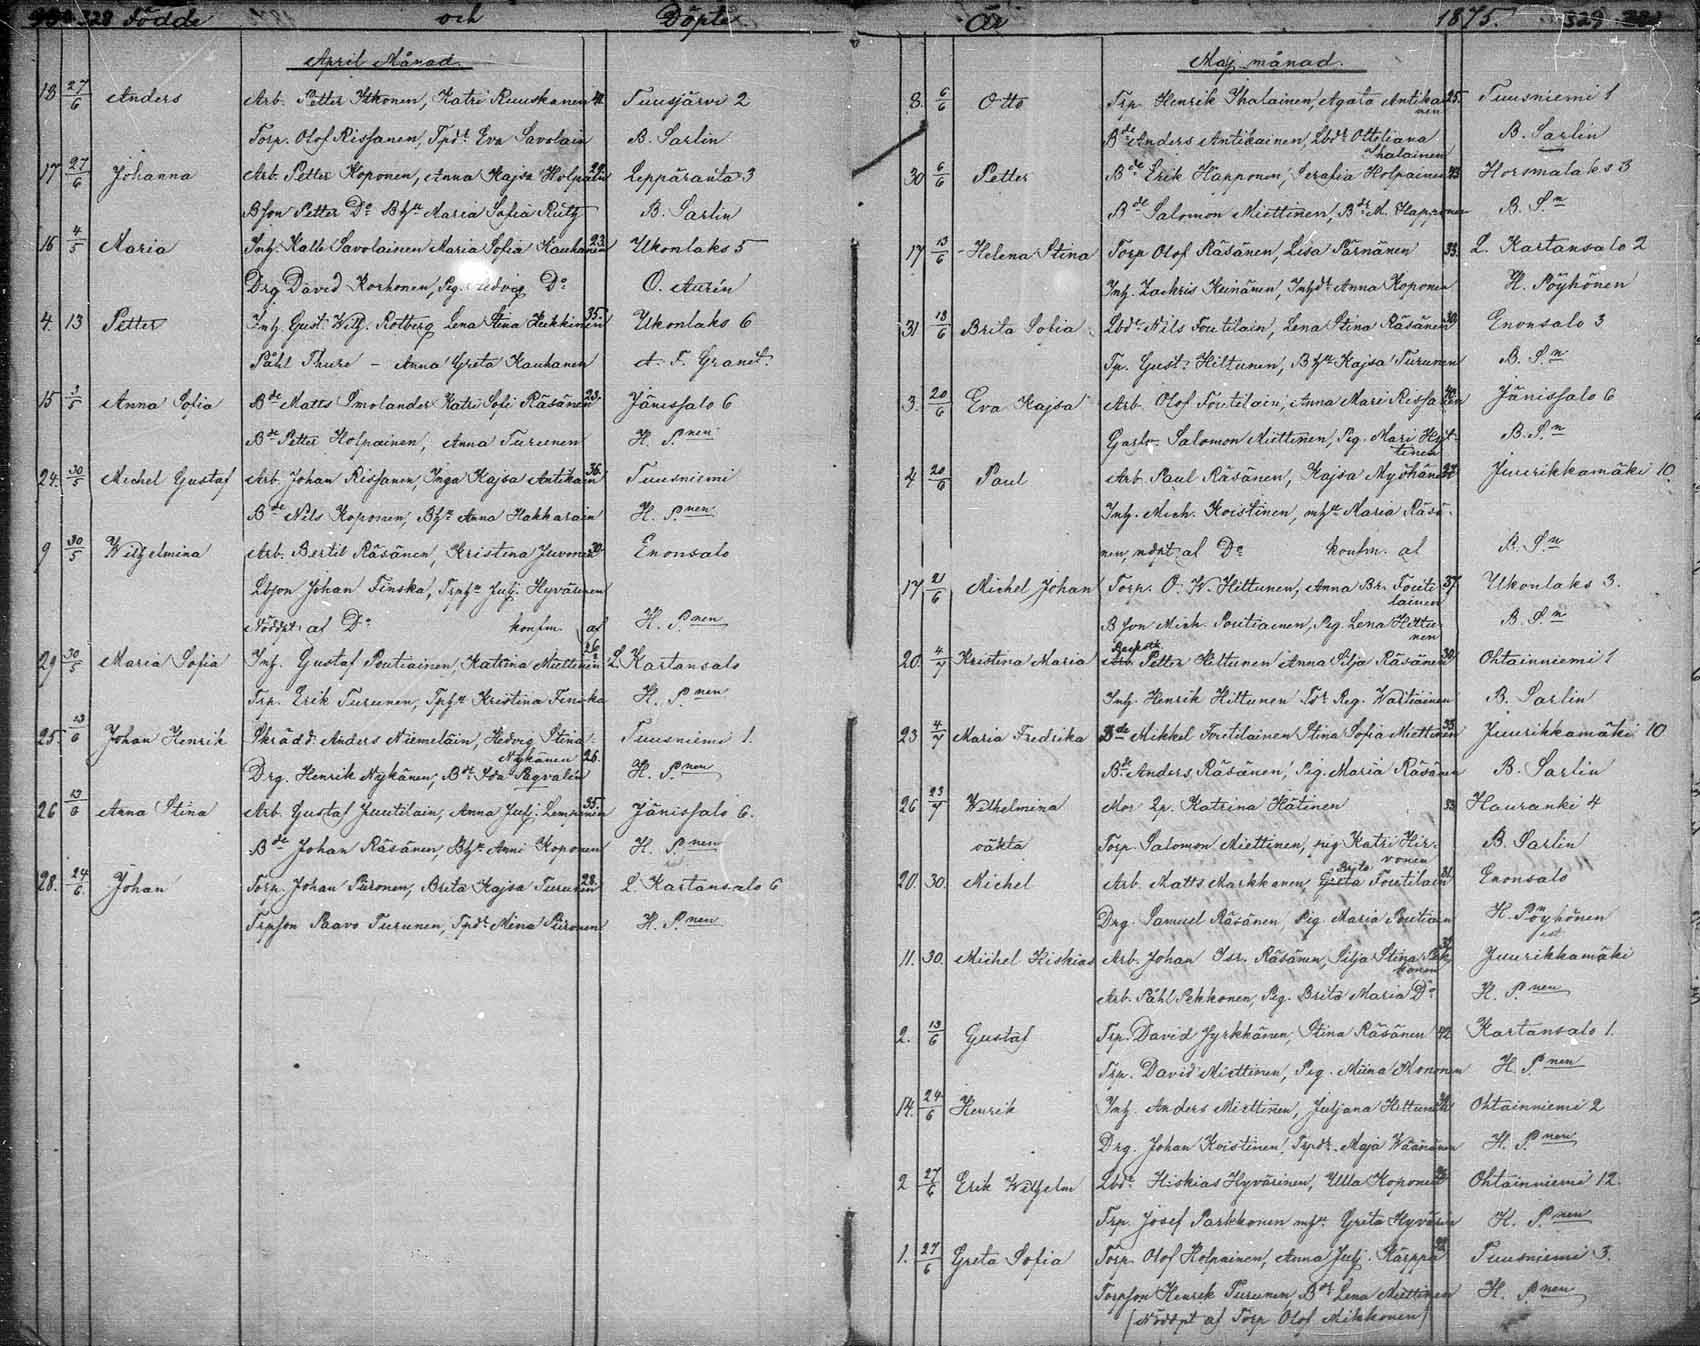 328 Födde och Döpte
April Månad.
13 27/6 Anders Arb. Petter Itkonen, Katri Ruuskanen Tuusjärvi 2
Torp. Olof Rissanen, Tpdr Eva Savolain B. Sarlin
17 27/6 Johanna Arb. Petter Koponen, Anna Kajsa Holpain 22 Leppäranta 3
Bson Petter Do Bhu Maria Sofia Rutz B. Sarlin
16 4/5 Maria Inh. Kalle Savolainen Maria Sofia Kauhanen 23 Ukonlaks 5
Drg David Korhonen, Pig. Hedvig Do O. Aurén
4. 13 Petter Inh. Gust. Wilh. Rotberg Lena Stina Heikkinen 35. Ukonlaks 6
Påhl Thure – Anna Greta Kauhanen A. F. Granit.
15 1/5 Anna Sofia Bde Matts Smolander Katri Sofi Räsänen 23. Jänissalo 6
Bde Petter Holpainen, Anna Turunen H. P.nen
24. 30/5 Michel Gustaf Arb. Johan Rissanen, Inga Kajsa Antikain 36. Tuusniemi
Bde Nils Koponen, Bhu Anna Hakkarain H. P.nen
9 30/5 Wilhelmina Arb. Bertil Räsänen, Kristina Juvonen 30. Enonsalo
Lbson Johan Finska, Trphu Julj. Hyvärinen
Nöddpt af Do konfm. af H. P.nen
29 30/5 Maria Sofia Inh. Gustaf Poutiainen, Katrina Miettinen 26. L. Kartansalo
Trp. Erik Turunen, Tphu Kristina Finska H. P.nen
25. 13/6 Johan Henrik Skrädd. Anders Niemeläin, Hedvig Stina Tuusniemi 1.
Nykänen 26.
Drg. Henrik Nykänen, Bdr Ida Pagvalin H. P.nen
26 13/6 Anna Stina Arb. Gustaf Juutilain, Anna Julj. Lempinen 35. Jänissalo 6.
Bde Johan Räsänen, Bhu Anni Koponen H. P.nen
28. 24/6 Johan Torp. Johan Piironen, Brita Kajsa Turunen 28. L. Kartansalo 6
Trpson Paavo Turunen, Tpdr Mina Piironen H. P.nen
År 1875. 329
Maj månad.
8. 6/6 Otto Trp. Henrik Ihalainen, Agata Antikai 25. Tuusniemi 1
nen
Bde Anders Antikainen, Lbdr Ottoliana B. Sarlin
Ihalainen
30 6/6 Petter Bde Erik Happonen, Serafia Holpainen 23 Horsmalaks 3
Bde Salomon Miettinen, Bdr M. Happonen B. S.n
17 13/6 Helena Stina Torp Olof Räsänen, Lisa Pärnänen 33. L. Kartansalo 2
Inh. Zachris Keinänen, Inhdr Anna Koponen H. Pöyhönen
31 13/6 Brita Sofia Lbdr Nils Foutilain, Lena Stina Räsänen 30. Enonsalo 3
Tp. Gust. Hiltunen, Bhu Kajsa Turunen B. S.n
3. 20/6 Eva Kajsa Arb. Olof Foutilain, Anna Mari Rissanen Jänissalo 6
Garfv. Salomon Miettinen, Pig. Mari Hyt- B. S.n
tinen
4 20/6 Paul Arb. Paul Räsänen, Kajsa Myöhänen Juurikkamäki 10.
Inh. Mich. Koistinen, mhu Maria Räsä-
nen, ndpt. af Do konfm. af B. S.n
17 21/6 Michel Johan Torp. O. W. Hiltunen, Anna Br. Fouti 37. Ukonlaks 3.
lainen
Bson Mich. Poutiainen, Pig. Lena Hiltu- B. S.n
nen
20. 4/7 Kristina Maria Petter Hiltunen Anna Silja Räsänen 30. Ohtainniemi 1
Inh. Henrik Hiltunen Tdr Reg. Wartiainen B. Sarlin
23 4/7 Maria Fredrika Bde Mikkel Foutilainen Stina Sofia Miettinen 35 Juurikkamäki 10
Bde Anders Räsänen, Pig. Maria Räsänen B. Sarlin
26 23/7 Wilhelmina Mor Lp. Katrina Hätinen 33 Hauranki 4
oäkta Torp. Salomon Miettinen, pig Katri Hir- B. Sarlin
vonen
20. 30. Michel Arb. Matts Markkanen, Greta Brita Foutilain 31. Enonsalo
Drg. Samuel Räsänen, Pig. Maria Poutiain H. Pöyhönen
11. 30. Michel Hiskias Arb. Johan Isr. Räsänen, Silja Stina Pek- Juurikkamäki
konen
Arb. Påhl Pekkonen, Pig. Brita Maria Do H. P.nen
2. 13/6 Gustaf Trp. David Jyrkkänen, Stina Räsänen 42 Kartansalo 1.
Trp. David Miettinen, Pig. Miina Mononen H. P.nen
14. 24/6 Henrik Inh. Anders Miettinen, Juljana Hiltunen Ohtainniemi 2
Drg. Johan Koistinen, Trpdr. Maja Wäänänen H. P.nen
2 27/6 Erik Wilhelm Lbdr Hiskias Hyvärinen, Ulla Koponen Ohtainniemi 12.
Trp. Josef Parkkonen mhu Greta Hyvärin H. P.nen
1. 27/6 Greta Sofia Torp. Olof Holpainen, Anna Julj. Kärppä Tuusniemi 3.
Torpson Henrik Turunen, Bdr Lena Miettinen H. P.nen
(Nöddpt af Torp Olof Mikkonen)